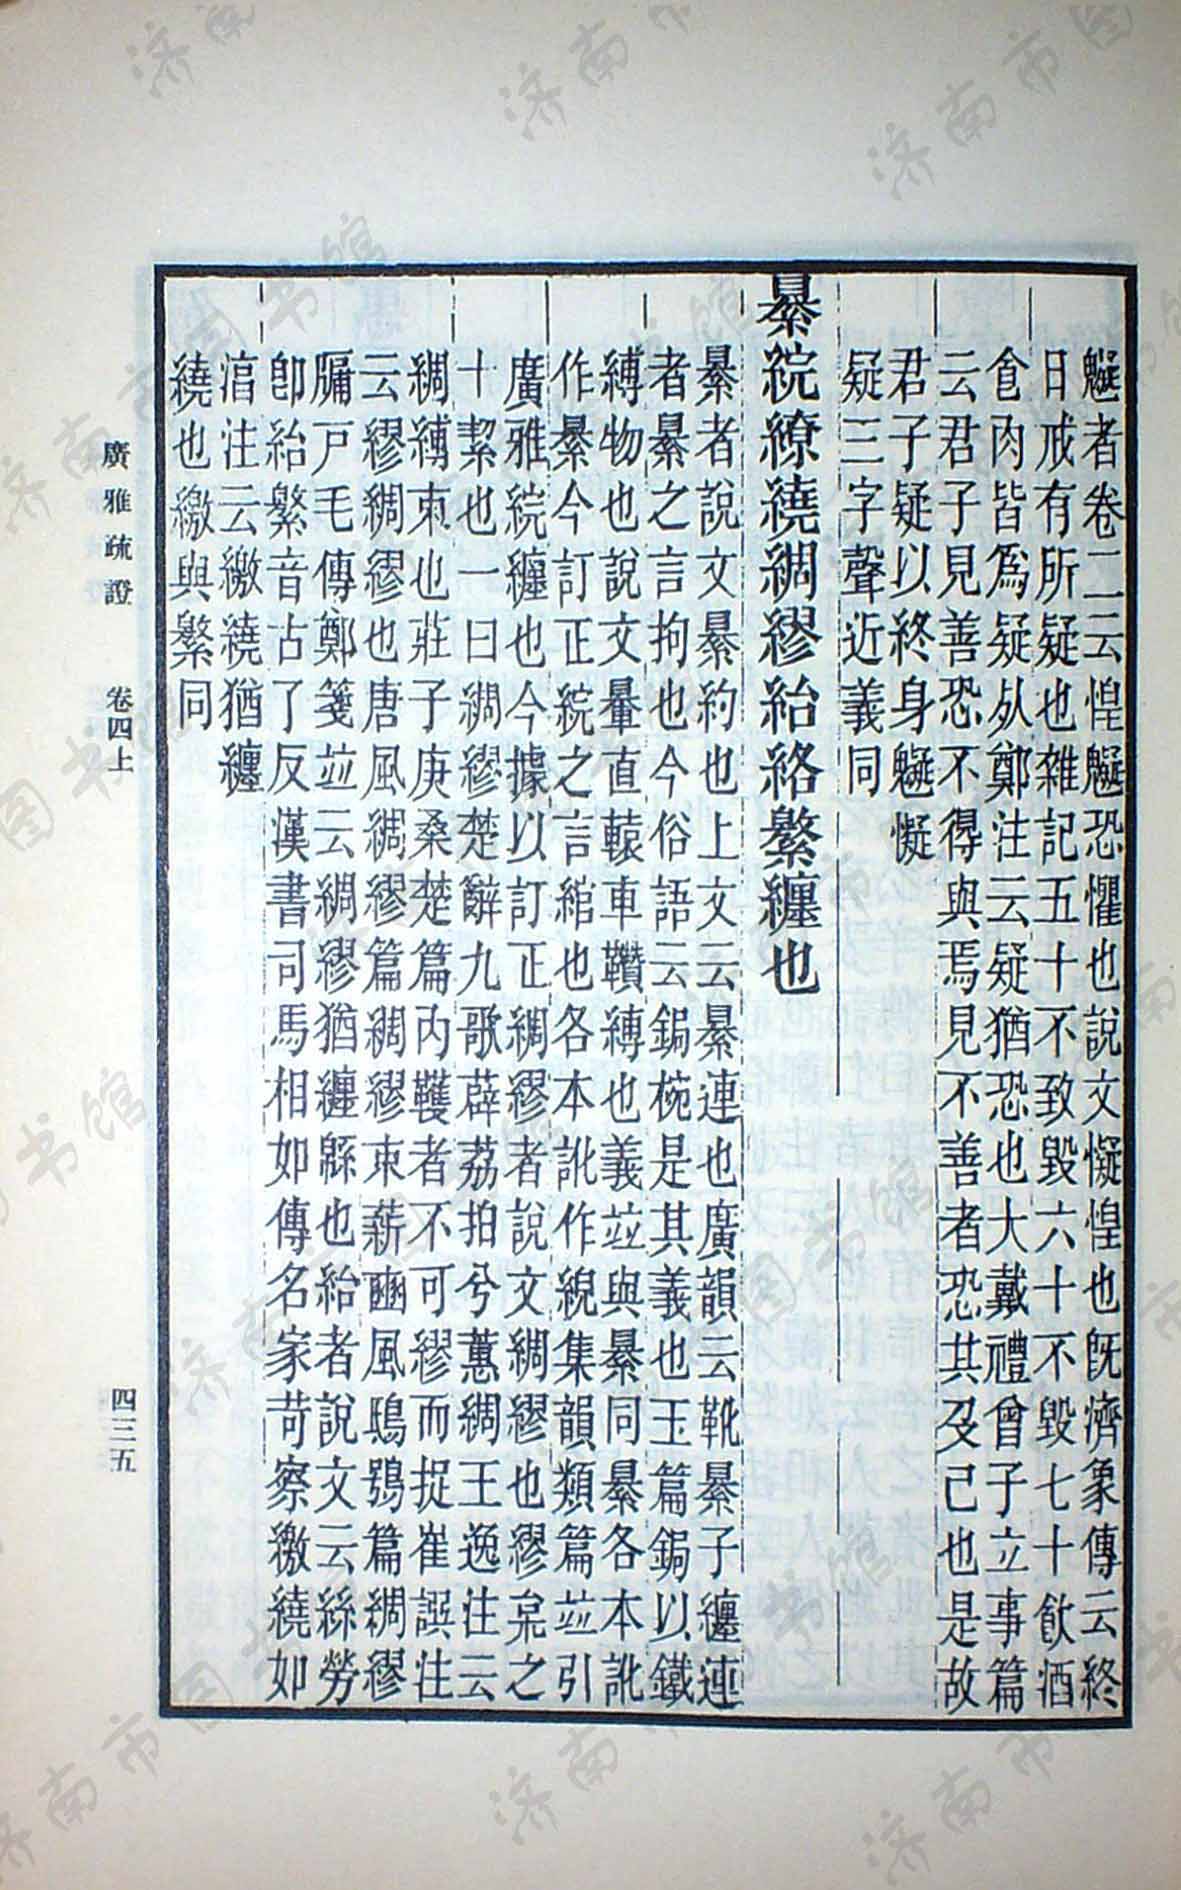 䰯者卷二云惶䰯恐懼也說文懝惶也旣濟象傳云終
日戒有所疑也雜記五十不致毀六十不毀七十飲酒
食肉皆爲疑死鄭注云疑猶恐也大戴禮曾子立事篇
云君子見善恐不得與焉見不善者恐其及己也是故
君子疑以終身䰯懝
疑三字聲近義同
絭綄繚繞綢繆紿絡繁纏也
絭者說文絭約也上文云絭連也廣韻云靴絭子纏連
者絭之言拘也今俗語云鋦椀是其義也玉篇鋦以鐵
縛物也說文轝直轅車鞼縛也義竝與絭同絭各本訛
作絫今訂正綄之言綰也各本訛作綐集韻類篇竝引
廣雅綄纏也今據以訂正綢繆者說文綢繆也繆枲之
十絜也一曰綢繆楚辭九歌薜荔拍兮蕙綢王逸注云
綢縛束也莊子庚桑楚篇內韄者不可繆而捉崔譔注
云繆綢繆也唐風綢繆篇綢繆束薪豳風鴟鴞篇綢繆
牖戸毛傳鄭箋竝云綢繆猶纏緜也紿者說文云絲勞
卽紿繁音古了反漢書司馬相如傳名家苛察繳繞如
淳注云繳繞猶纏
繞也繳與繁同
廣雅疏證 卷四上 四三五
濟南市图书馆